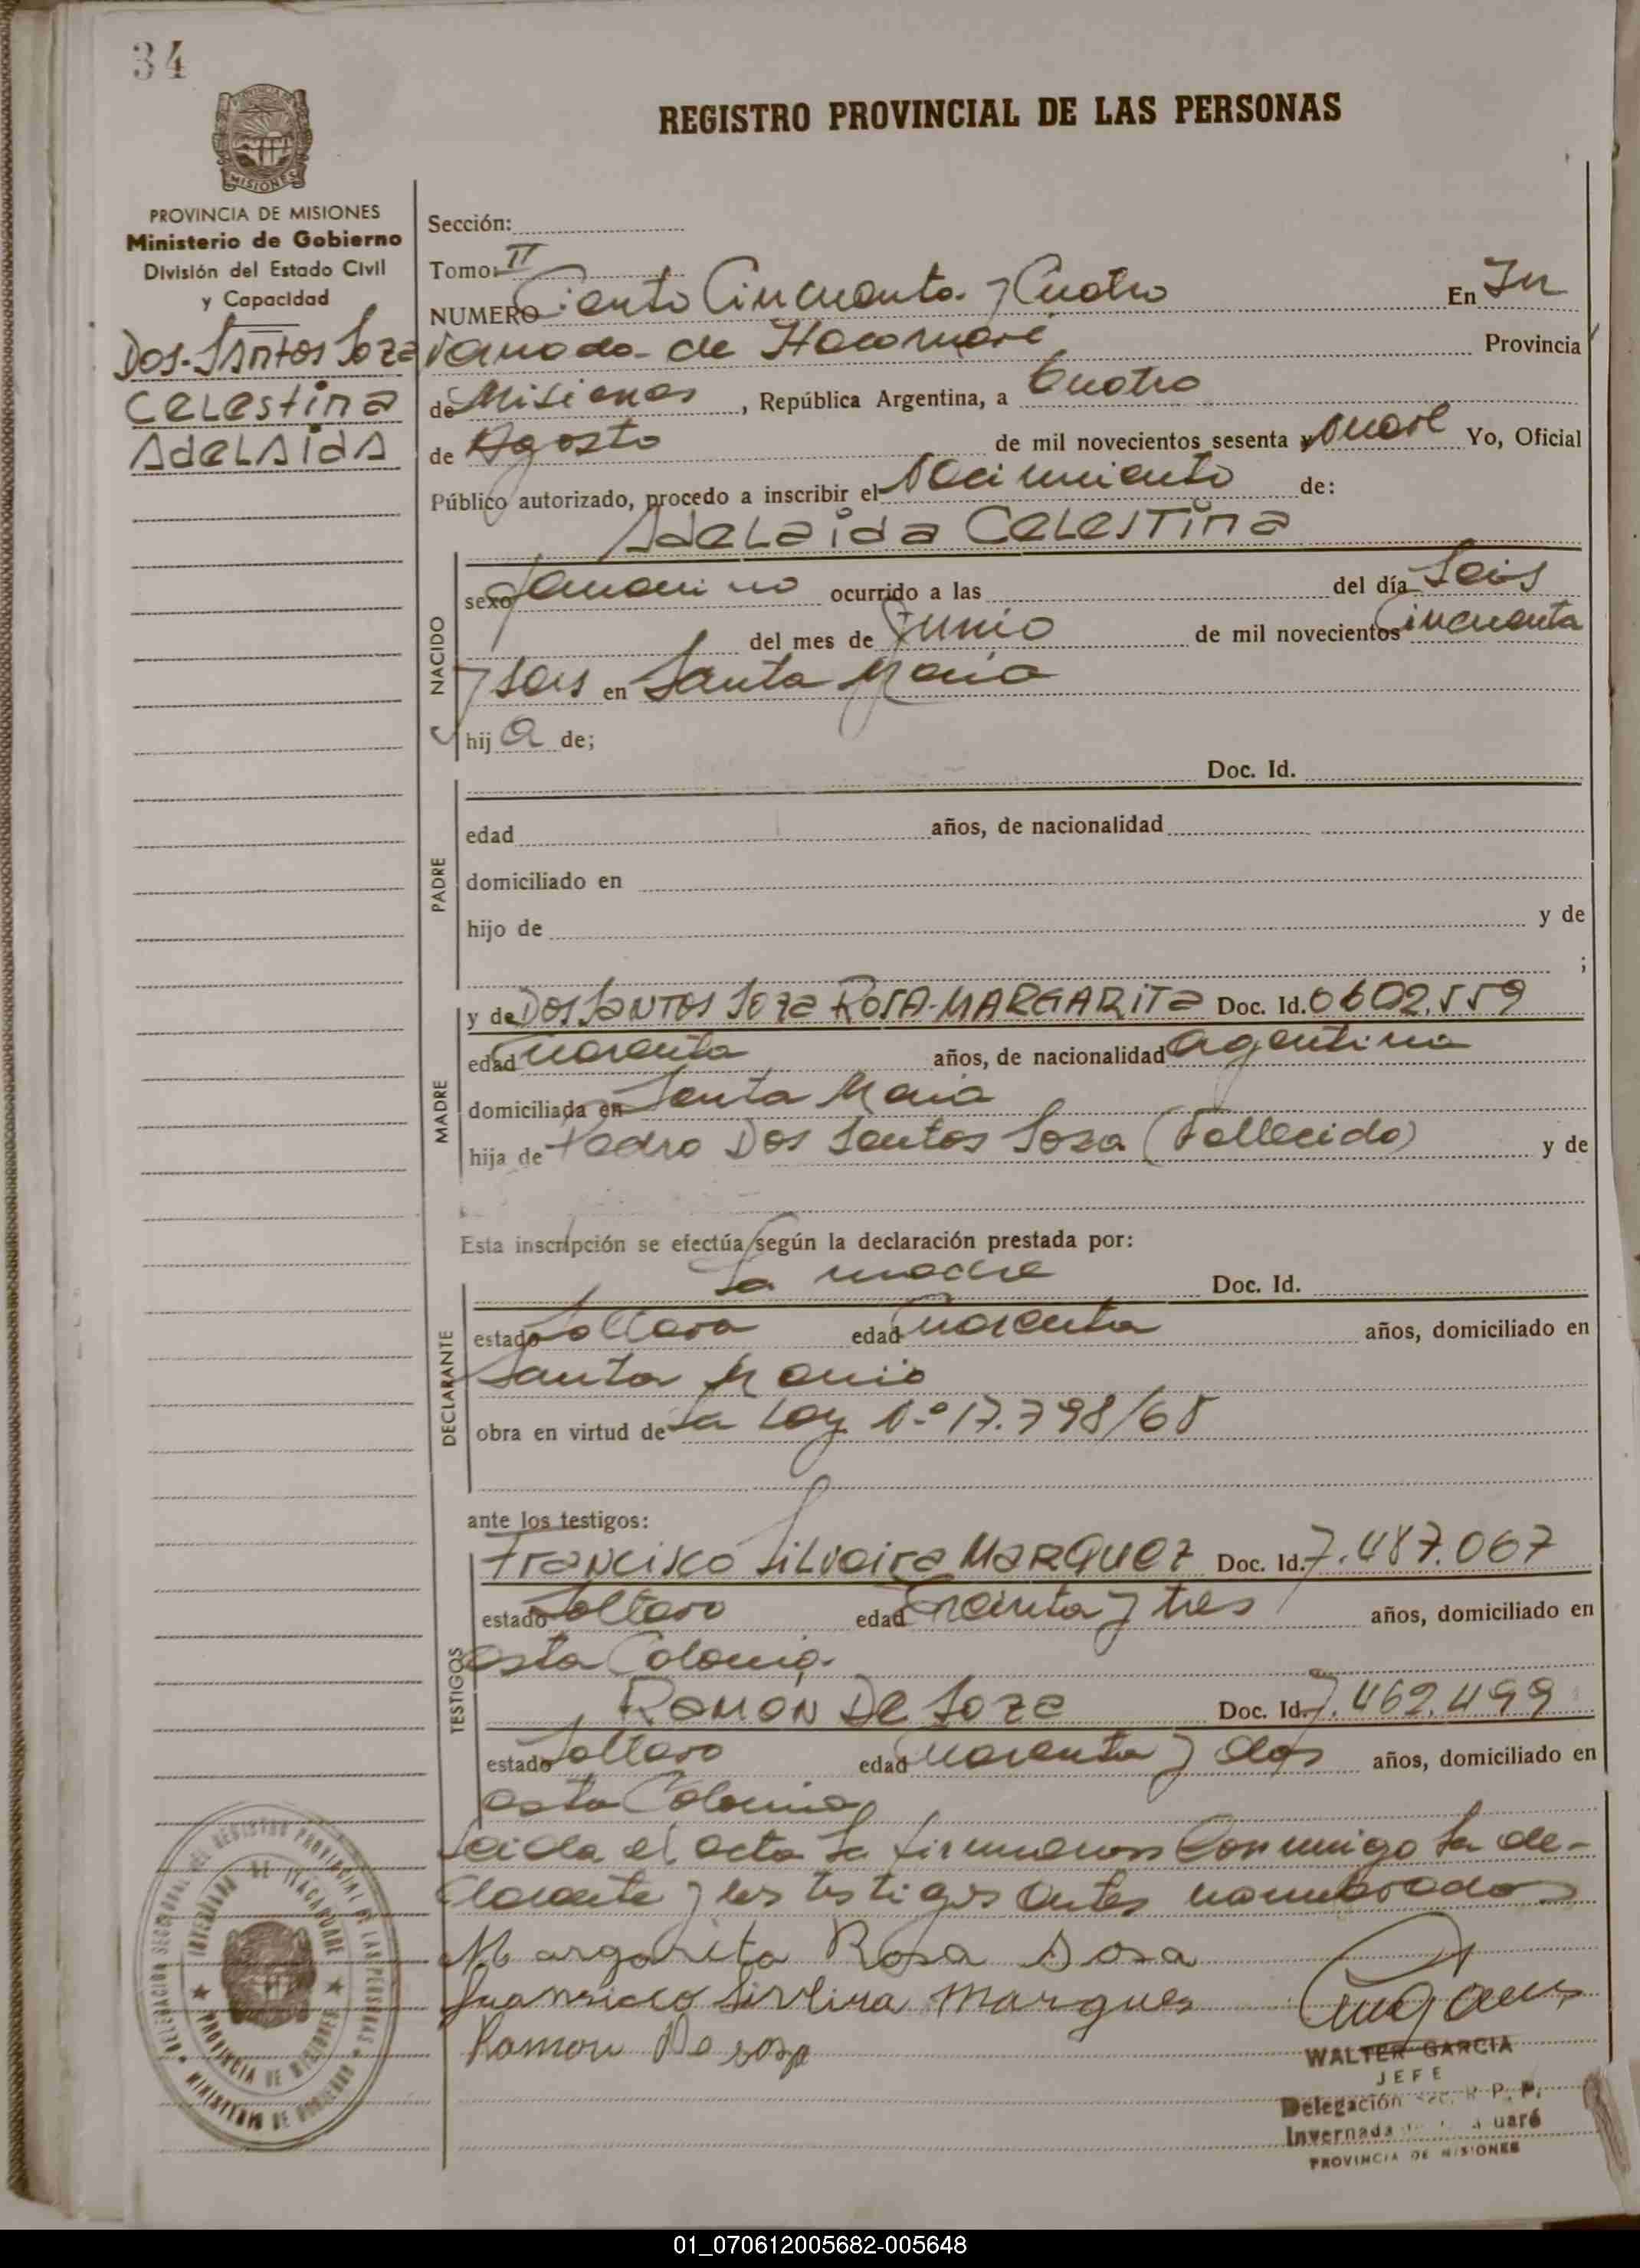 34
REGISTRO PROVINCIAL DE LAS PERSONAS
PROVINCIA DE MISIONES
Ministerio de Gobierno
División del Estado Civil
y Capacidad
Dos-Santos Soza
Celestina
Adelaida
Sección:
Tomo: II
NUMERO Ciento Cincuenta y Cuatro En In
vernada de Itacaruaré Provincia
de Misiones, República Argentina, a Cuatro
de Agosto de mil novecientos sesenta y nueve Yo, Oficial
Público autorizado, procedo a inscribir el Nacimiento de:
Adelaida Celestina
NACIDO
sexo femenino ocurrido a las del día Seis
del mes de Junio de mil novecientos Cincuenta
y seis en Santa María
hij a de;
PADRE
Doc. Id.
edad años, de nacionalidad
domiciliado en
hijo de y de
;
MADRE
y de Dos Santos Soza Rosa-Margarita Doc. Id. 0602.559
edad Cuarenta años, de nacionalidad agentina
domiciliada en Santa María
hija de Pedro Dos Santos Soza (Fallecido) y de
Esta inscripción se efectúa según la declaración prestada por:
DECLARANTE
La madre Doc. Id.
estado Soltera edad Cuarenta años, domiciliado en
Santa María
obra en virtud de La Ley N.º 17.798/68
ante los testigos:
TESTIGOS
Francisco Silveira Marquez Doc. Id. 7.487.067
estado Soltero edad Treinta y tres años, domiciliado en
esta Colonia.
Ramón De Soza Doc. Id. 7.462.499
estado Soltero edad Cuarenta y dos años, domiciliado en
esta Colonia
Leida el acta la firmaron Conmigo la de-
clarante y los testigos antes nombrados
Margarita Rosa Sosa
Francisco Silvira Marques
Ramon De soza
WALTER GARCIA
JEFE
Delegación Sec. R. P. P.
Invernada
PROVINCIA DE MISIONES
DELEGACION SECCIONAL DEL REGISTRO PROVINCIAL DE LAS PERSONAS
INVERNADA DE ITACARUARE
PROVINCIA DE MISIONES
MINISTERIO DE GOBIERNO
01_070612005682-005648